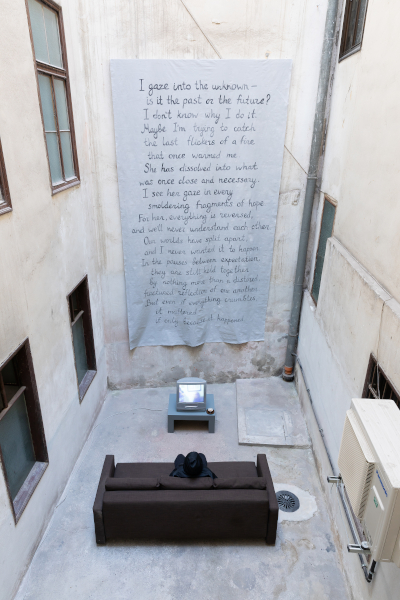 I gaze into the unknown –
is it the past or the future?
I don't know why I do it.
Maybe I'm trying to catch
the last flickers of a fire
that once warmed me.
She has dissolved into what
was once close and necessary.
I see her gaze in every
smoldering fragments of hope
For her, everything is reversed,
and we'll never understand each other.
Our worlds have split apart,
and I never wanted it to happen.
In the pauses between expectation,
they are still held together
by nothing more than a distorted
reflection of one another.
But even if everything crumbles,
it mattered
if only because it happened.